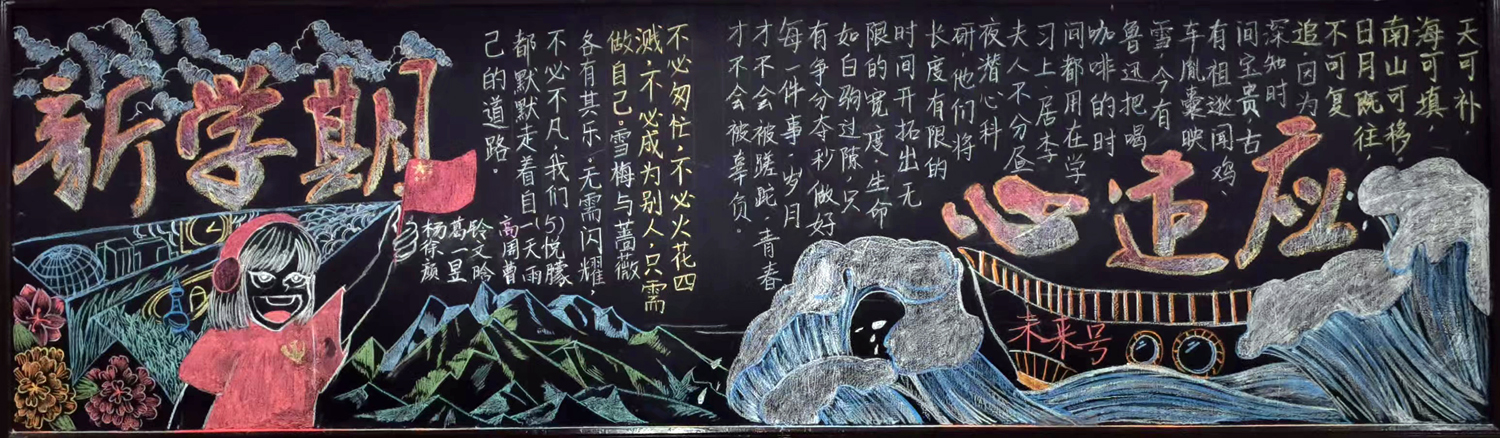 新学期
心适应
天可补，
海可填，
南山可移。
日月既往，
不可复
追。因为
深知时
间宝贵，古
有祖逖闻鸡、
车胤囊映
雪，今有
鲁迅把喝
咖啡的时
间都用在学
习上，居李
夫人不分昼
夜潜心科
研，他们将
长度有限的
时间开拓出无
限的宽度。生命
如白驹过隙，只
有争分夺秒做好
每一件事，岁月
才不会被蹉跎，青春
才不会被辜负。
不必匆忙，不必火花四
溅，不必成为别人，只需
做自己。雪梅与蔷薇
各有其乐。无需闪耀，
不必不凡，我们
都默默走着自
己的道路。
高一(5)
周天悦
曹雨朦
杨葛聆
徐一文
颜昱晗
未来号